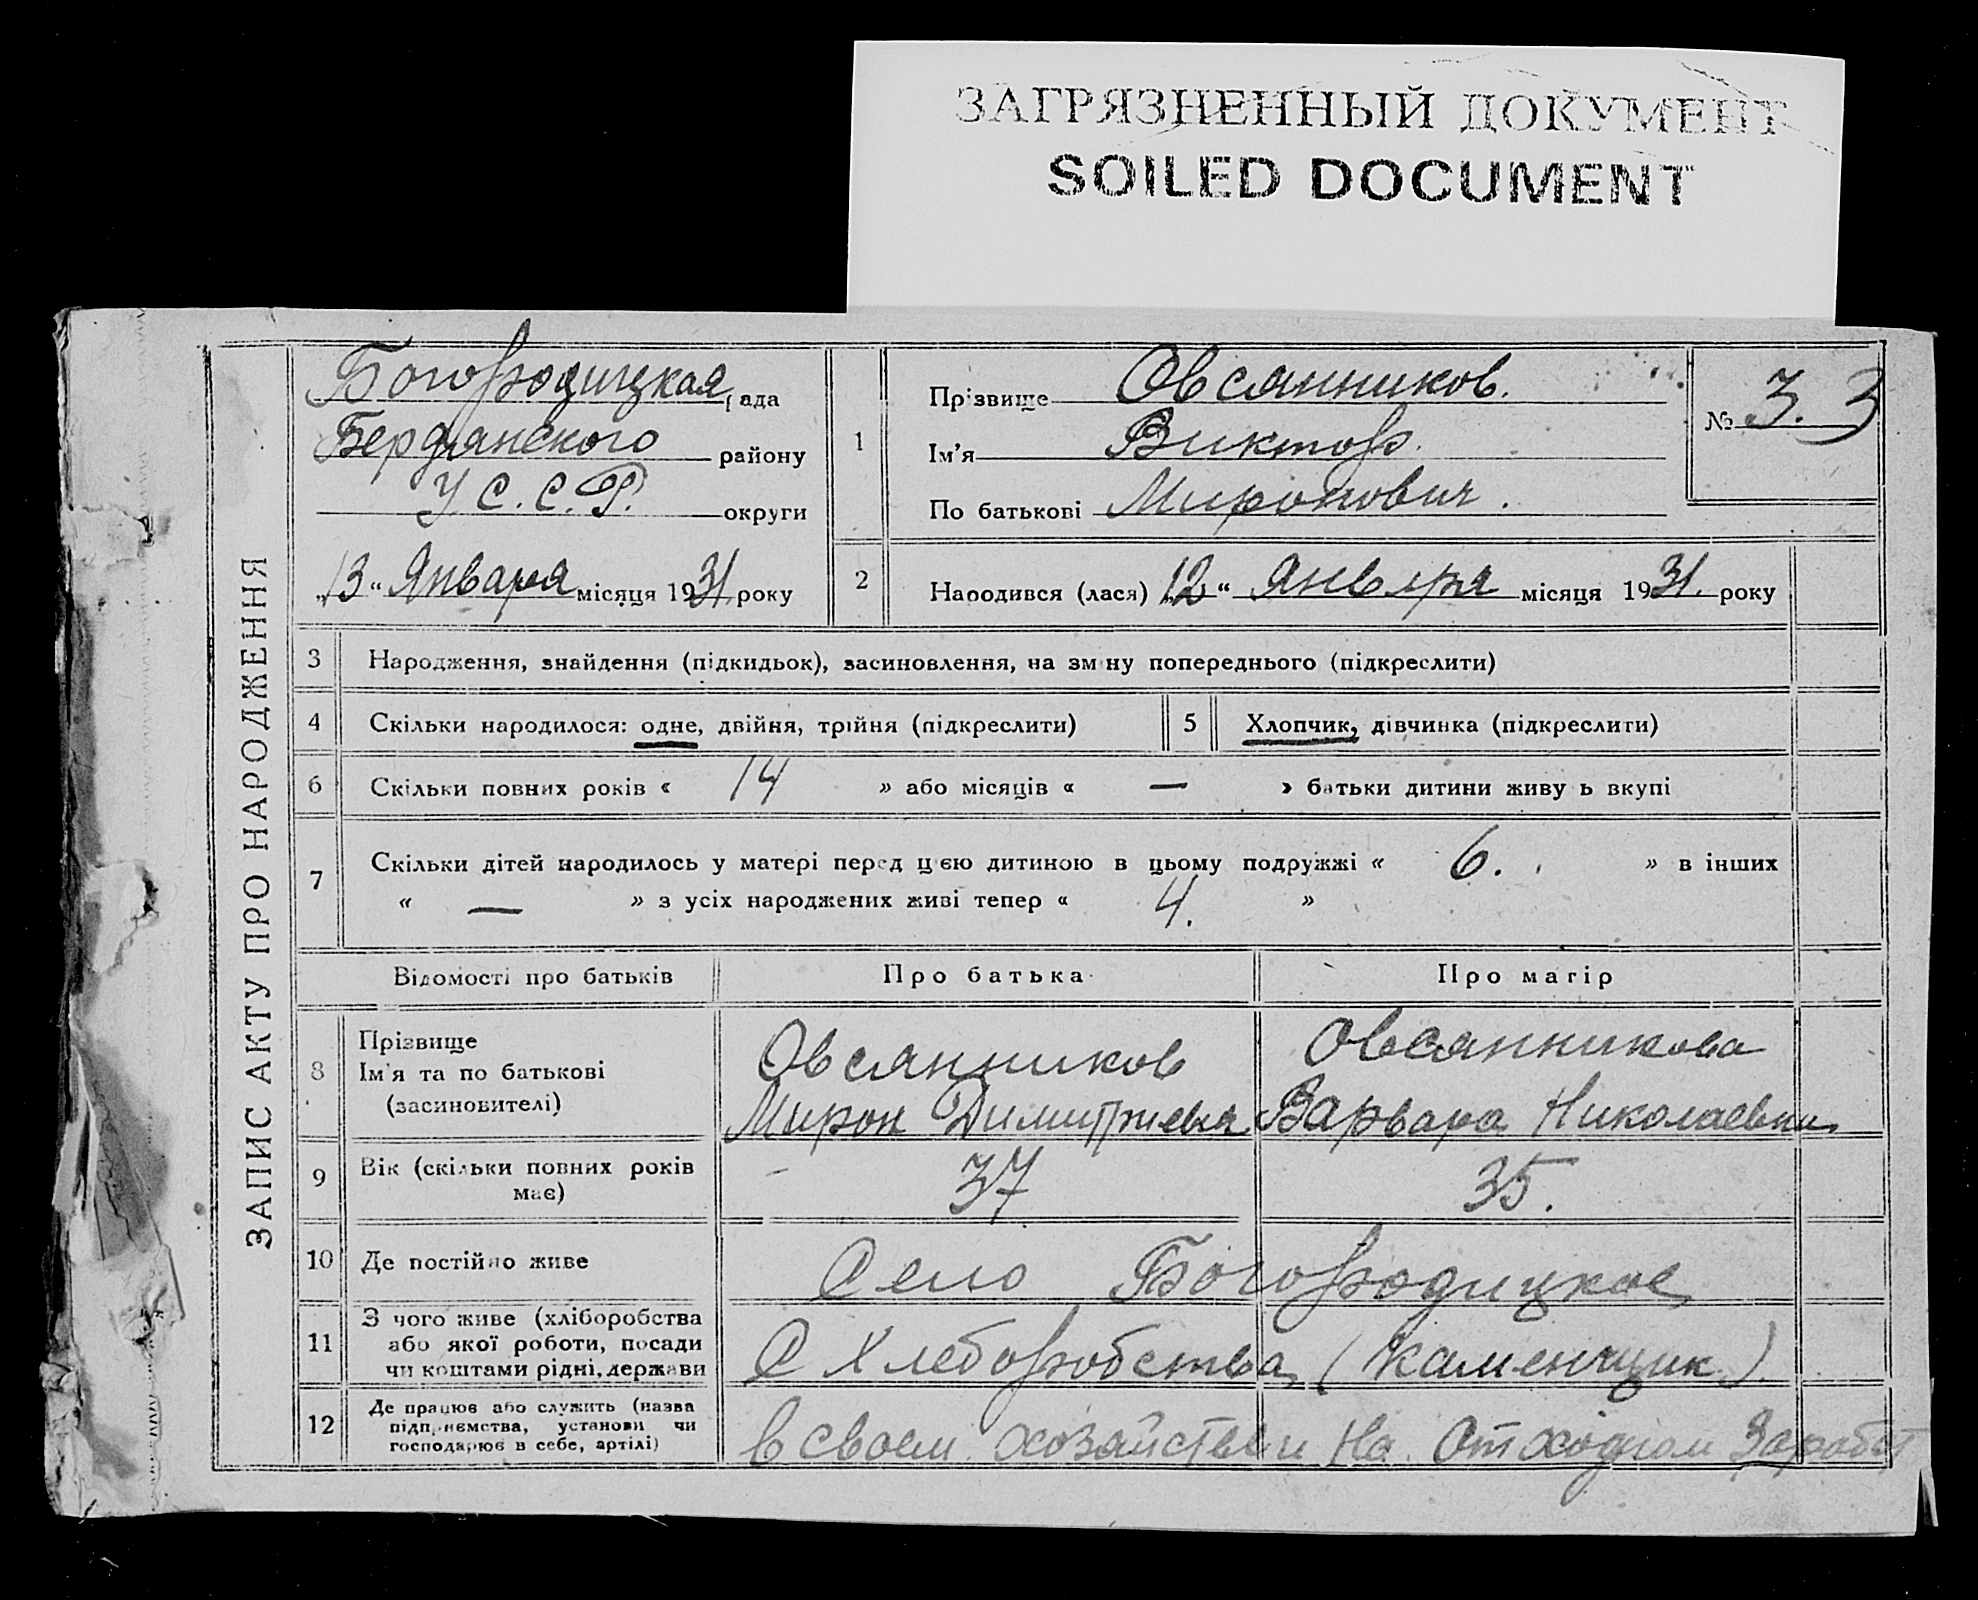 ЗАГРЯЗНЕННЫЙ ДОКУМЕНТ
SOILED DOCUMENT
ЗАПИС АКТУ ПРО НАРОДЖЕННЯ
Богородицкая рада
Бердянского району
У.С.С.Р. округи
„13“ Января місяця 1931 року
1
Прізвище Овсянников.
Ім'я Виктор.
По батькові Миронович.
№ 3. 3
2 Народився (лася) „12“ Января місяця 1931. року
3 Народження, знайдення (підкидьок), засиновлення, на зміну попереднього (підкреслити)
4 Скільки народилося: одне, двійня, трійня (підкреслити) 5 Хлопчик, дівчинка (підкреслити)
6 Скільки повних років « 14 » або місяців « — » батьки дитини живуть вкупі
7 Скільки дітей народилось у матері перед цією дитиною в цьому подружжі « 6. » в інших
« — » з усіх народжених живі тепер « 4. »
Відомості про батьків Про батька Про матір
8 Прізвище
Ім'я та по батькові
(засиновителі)
Овсянников
Мирон Димитриевич
Овсянникова
Варвара Николаевна
9 Вік (скільки повних років
має)
37 35.
10 Де постійно живе Село Богородицкое
11 З чого живе (хліборобства
або якої роботи, посади
чи коштами рідні, держави
С Хлеборобства (Каменщик)
12 Де працює або служить (назва
підприємства, установи чи
господарює в себе, артілі)
в своем хозяйстве и На Отхожем Заработ